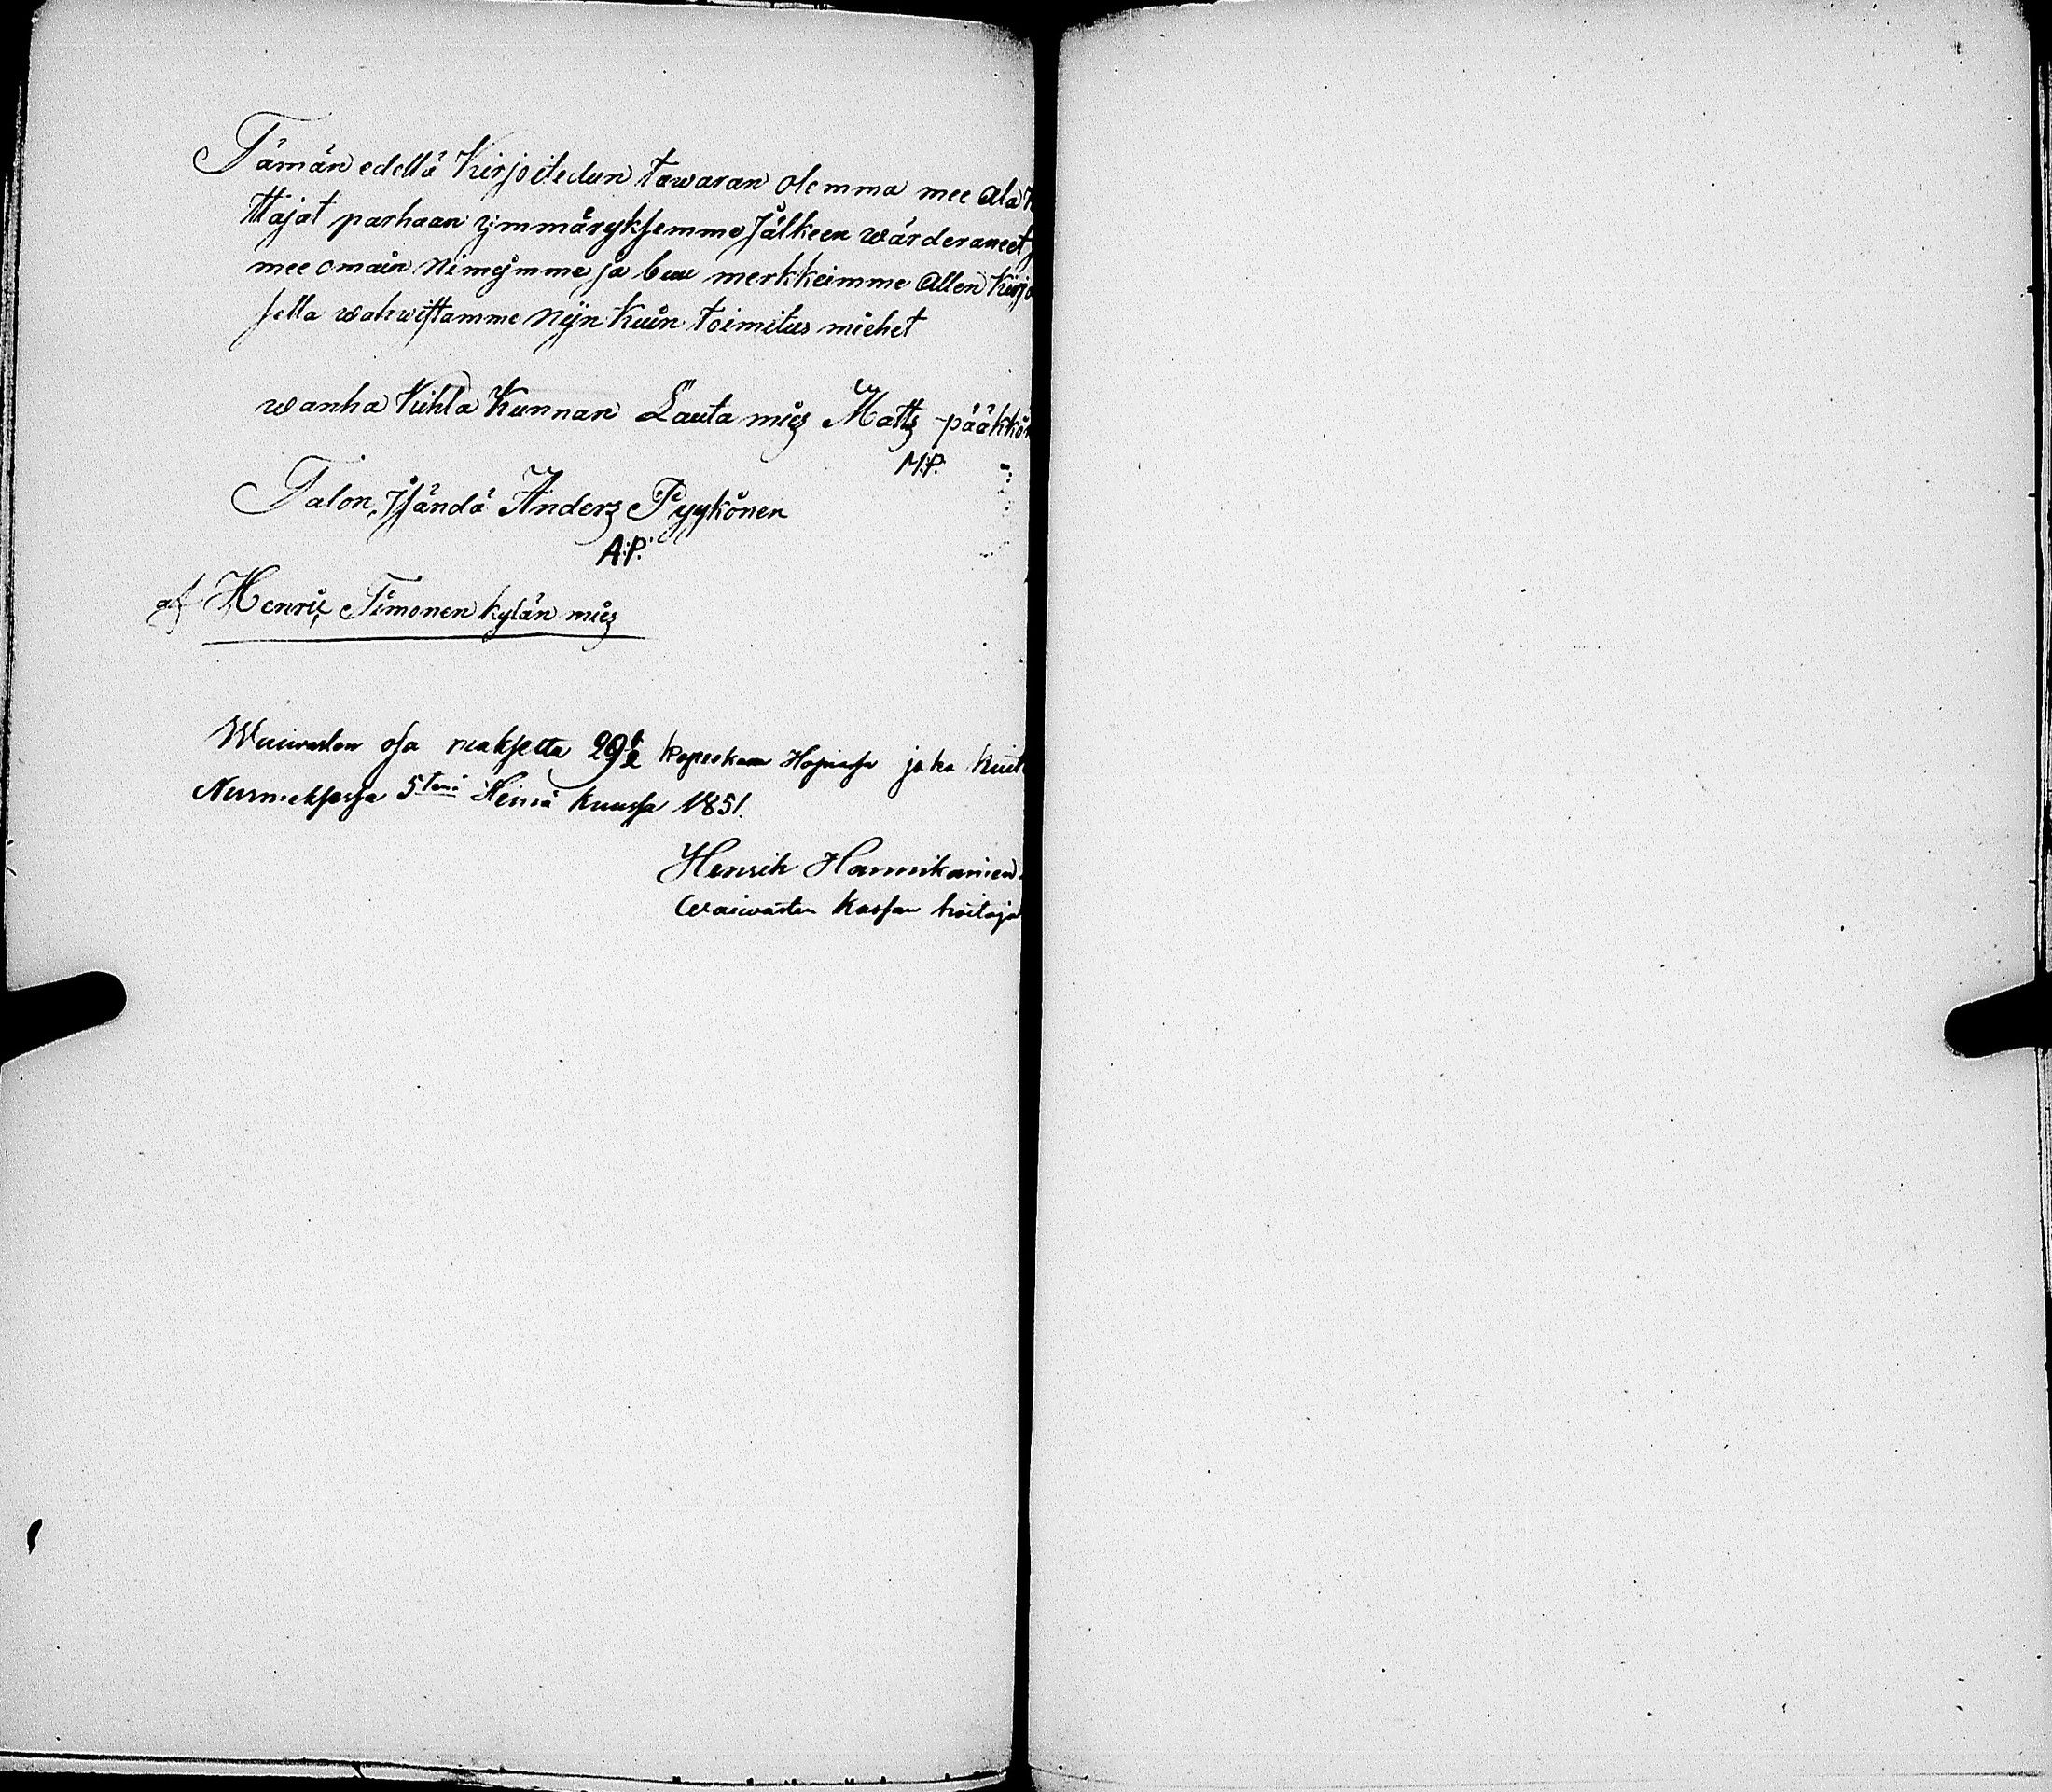 Tämän edellä Kirjoitedun tawaran olemma mee ala
ttajat parhaan ymmäryksemme Jälkeen wärderaneet
mee omain nimejmme ja buu merkkeimme allen Kirjo
sella wahwistamme nijn kuin toimitus miehet
wanha Kihla Kunnan Lauta mies Matts pääkkö
M:P.
Talon Isändä Anders Pyykönen
A:P.
af Henric Timonen kylän mies
Waiwasten osa maksettu 29½ kopeekaa Hopiassa joka kuit
Nurmeksessa 5tenä Heinä kuussa 1851.
Henrik Hannikainen
Waiwasten kassan hoitaja